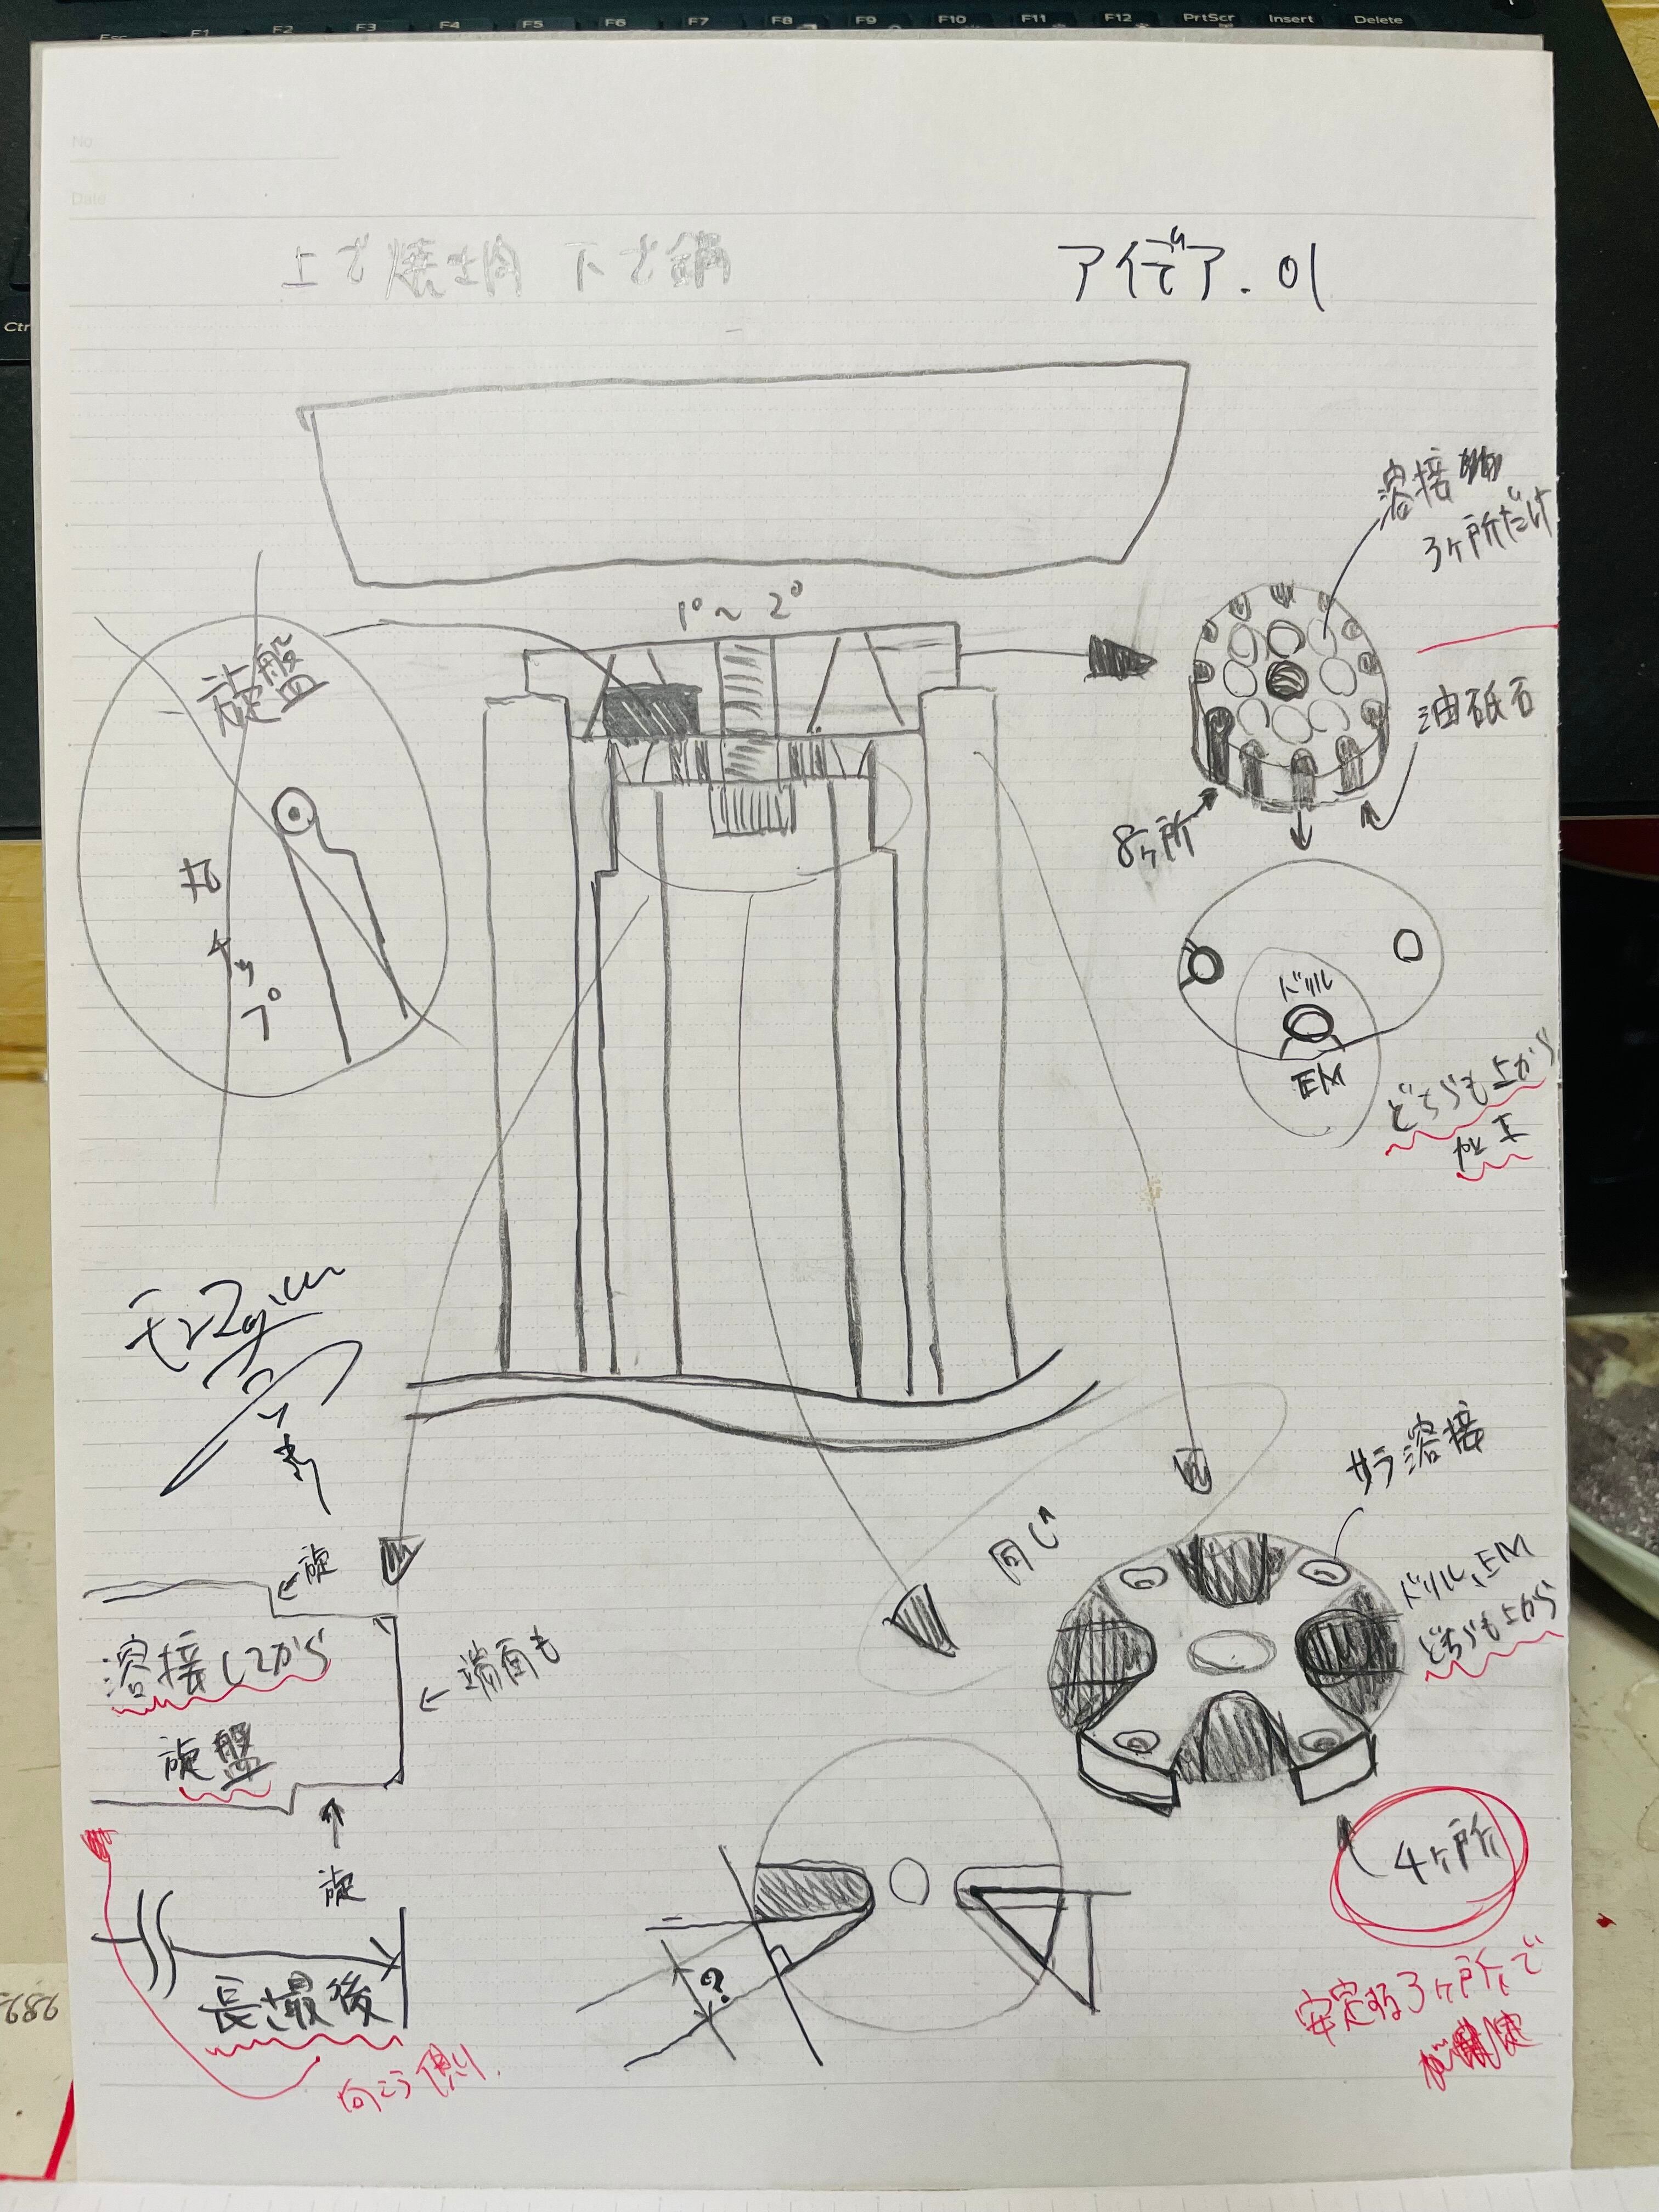 Esc F1 F2 F3 F4 F5 F6 F7 F8 F9 F10 F11 F12 PrtScr Insert Delete
Ctr
No
Date
上で焼き肉 下で鍋
アイデア.01
溶接
3ヶ所だけ
1°~2°
旋盤
油砥石
8ヶ所
丸
チップ
ドリル
EM
どちらも上から
加工
サラ溶接
同じ
←旋
ドリル、EM
どちらも上から
溶接してから
←端面も
旋盤
4ヶ所
旋
?
長さ最後
安定する3ヶ所で
向こう側